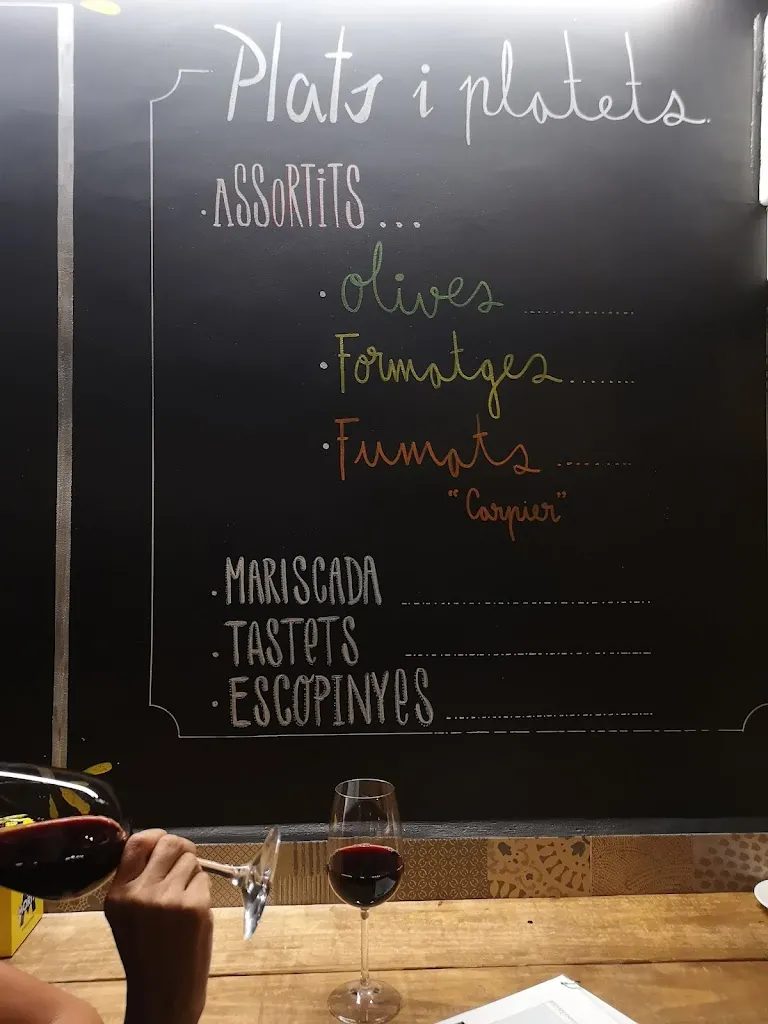 Plats i platets.
· ASSORTITS ...
· Olives ..................
· Formatges ..........
· Fumats ............
"Carpier"
· MARISCADA ..................
· TASTETS ..................
· ESCOPINYES ..................